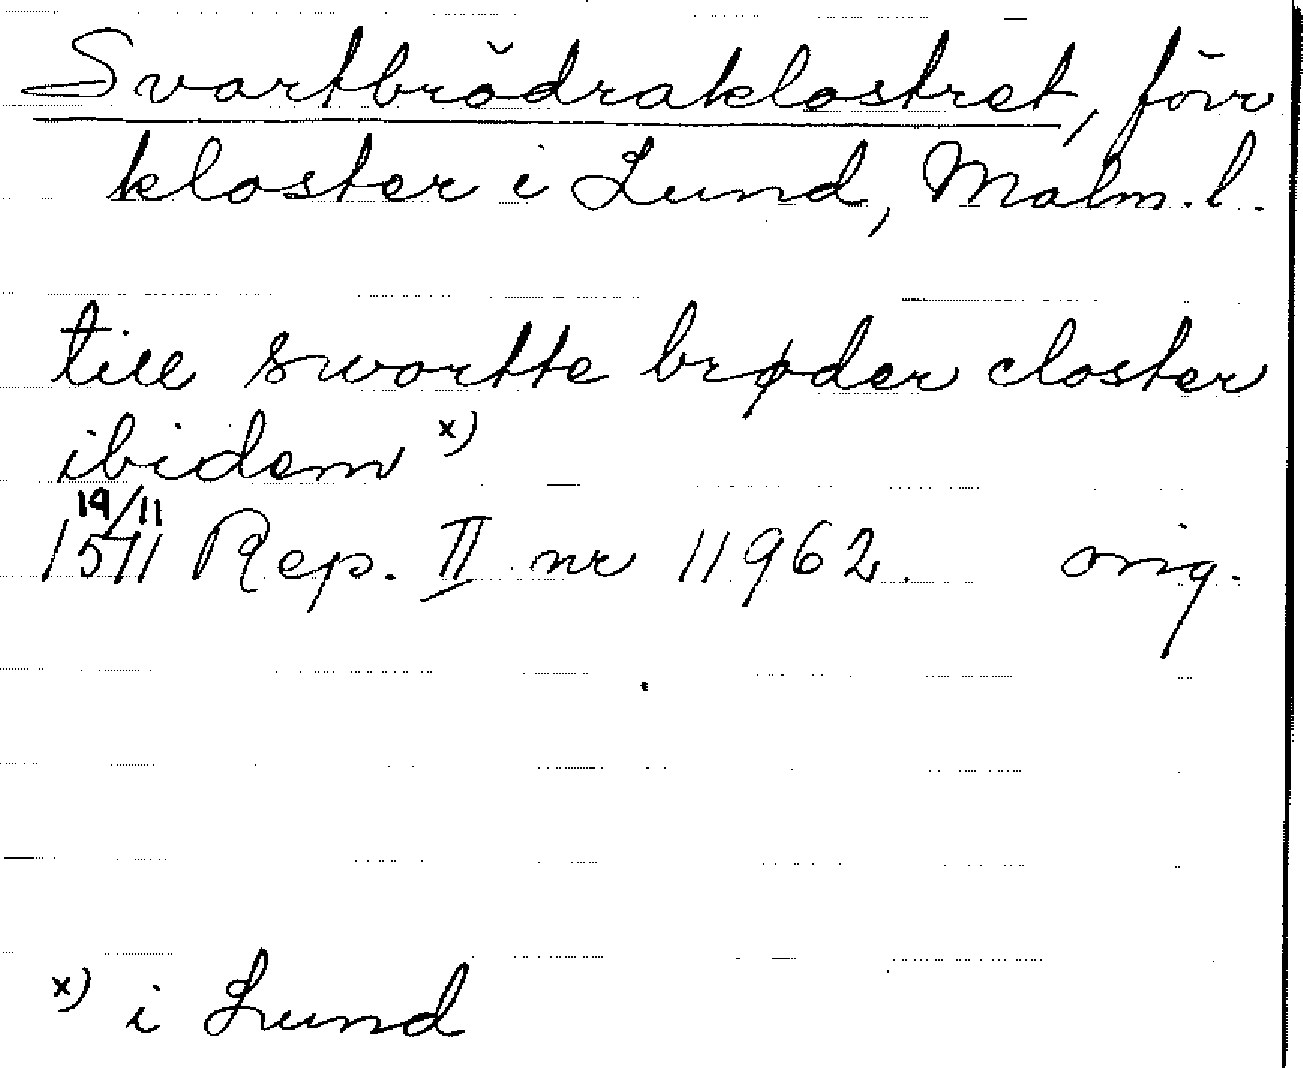 Svartbrödraklostret, förr
kloster i Lund, Malm. l.
till swortte brøder closter
ibidem x)
19/11
1511 Rep. II nr 11962. orig.
x) i Lund